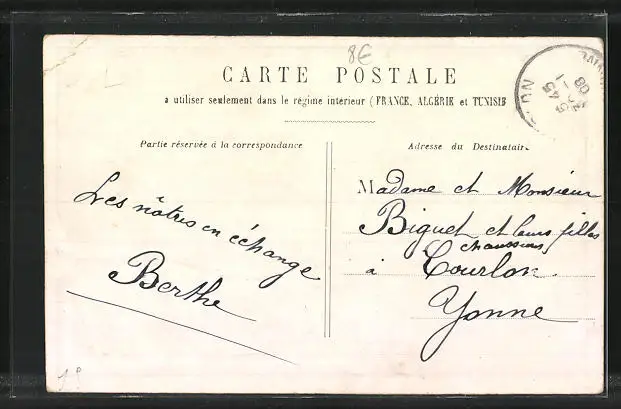 8€
CARTE POSTALE
a utiliser seulement dans le régime intérieur (FRANCE, ALGÉRIE et TUNISIE
Partie réservée à la correspondance
Adresse du Destinataire
Les nôtres en échange
Berthe
Madame et Monsieur
Biguet et leurs filles
chaussures
à Courlon
Yonne